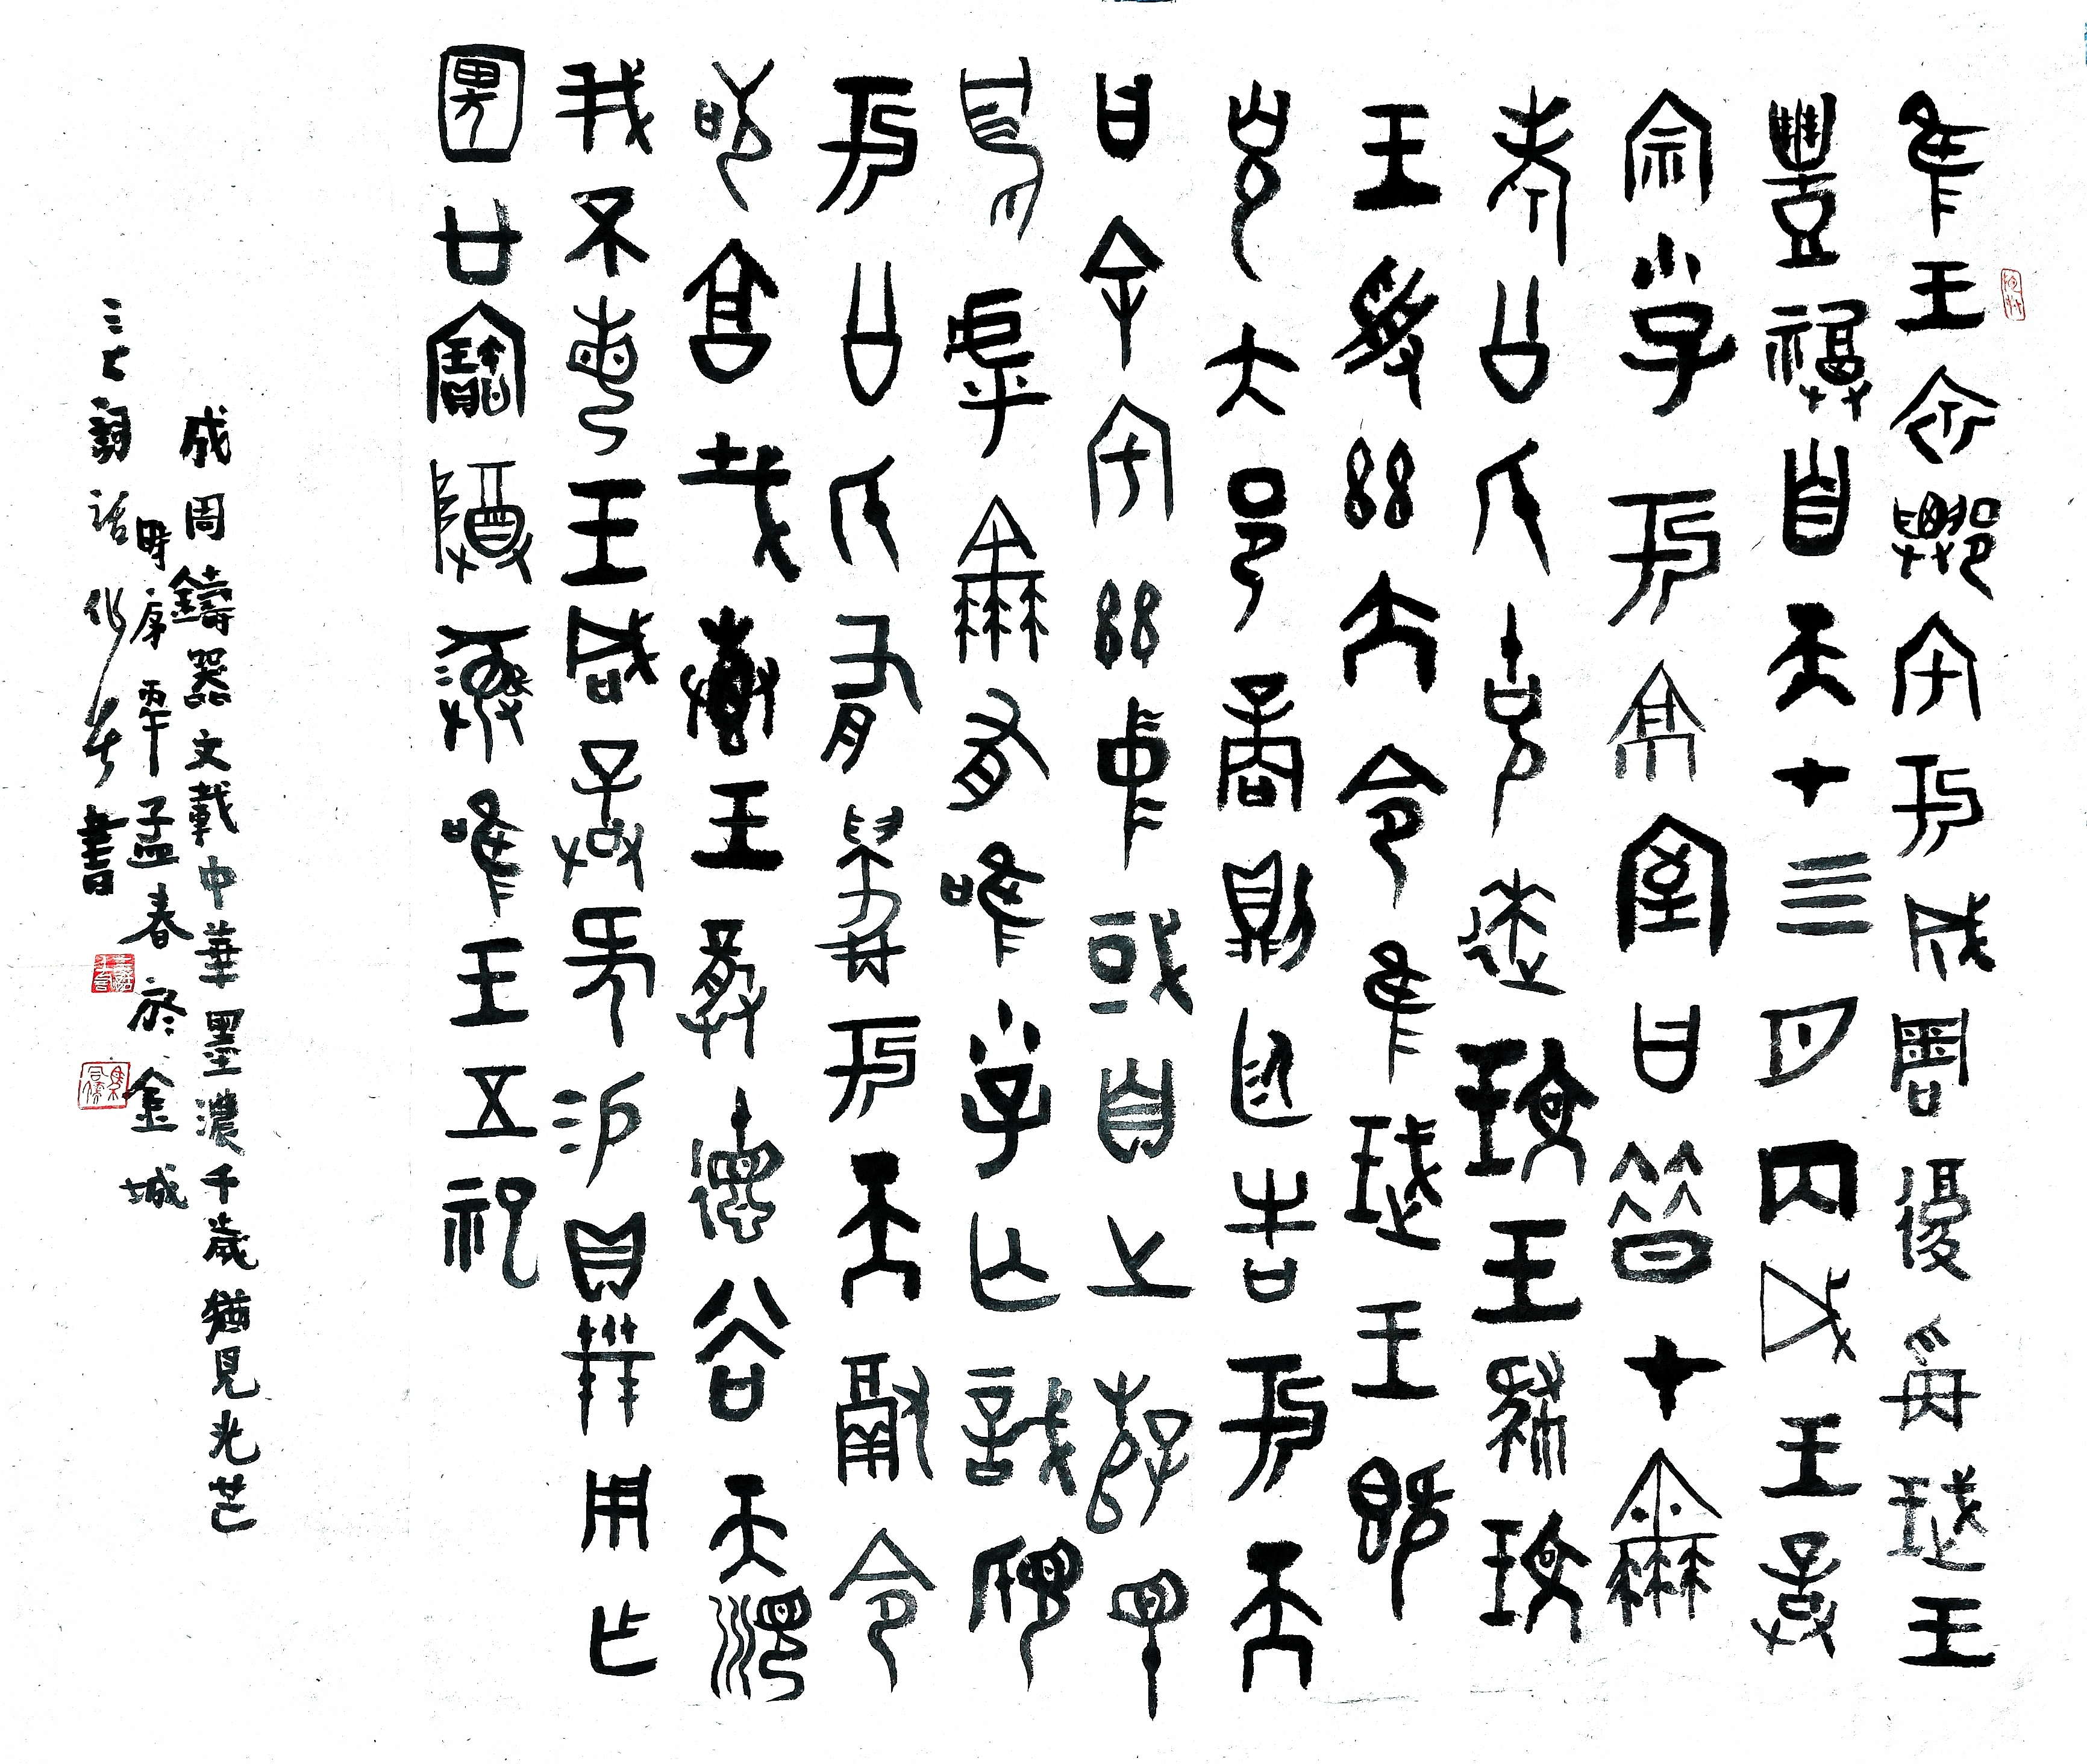 隹王初遷宅于成周復爯珷王
豐福自天才亖月丙戌王誥
宗小子于京室曰昔才爾
考公氏克逨玟王肆玟
王受茲大令隹珷王既
克大邑商則廷告于天
曰余宅茲中或自之乂民
烏虖爾有唯小子亡識視
于公氏有爵于天徹令
苟享哉叀王恭德谷天順
我不每王咸誥何易貝卅朋用乍
公寶尊彝唯王五祀
成周鑄器文載中華墨濃千歲猶見光芒
時序丙午孟春於金城
三七詞話書